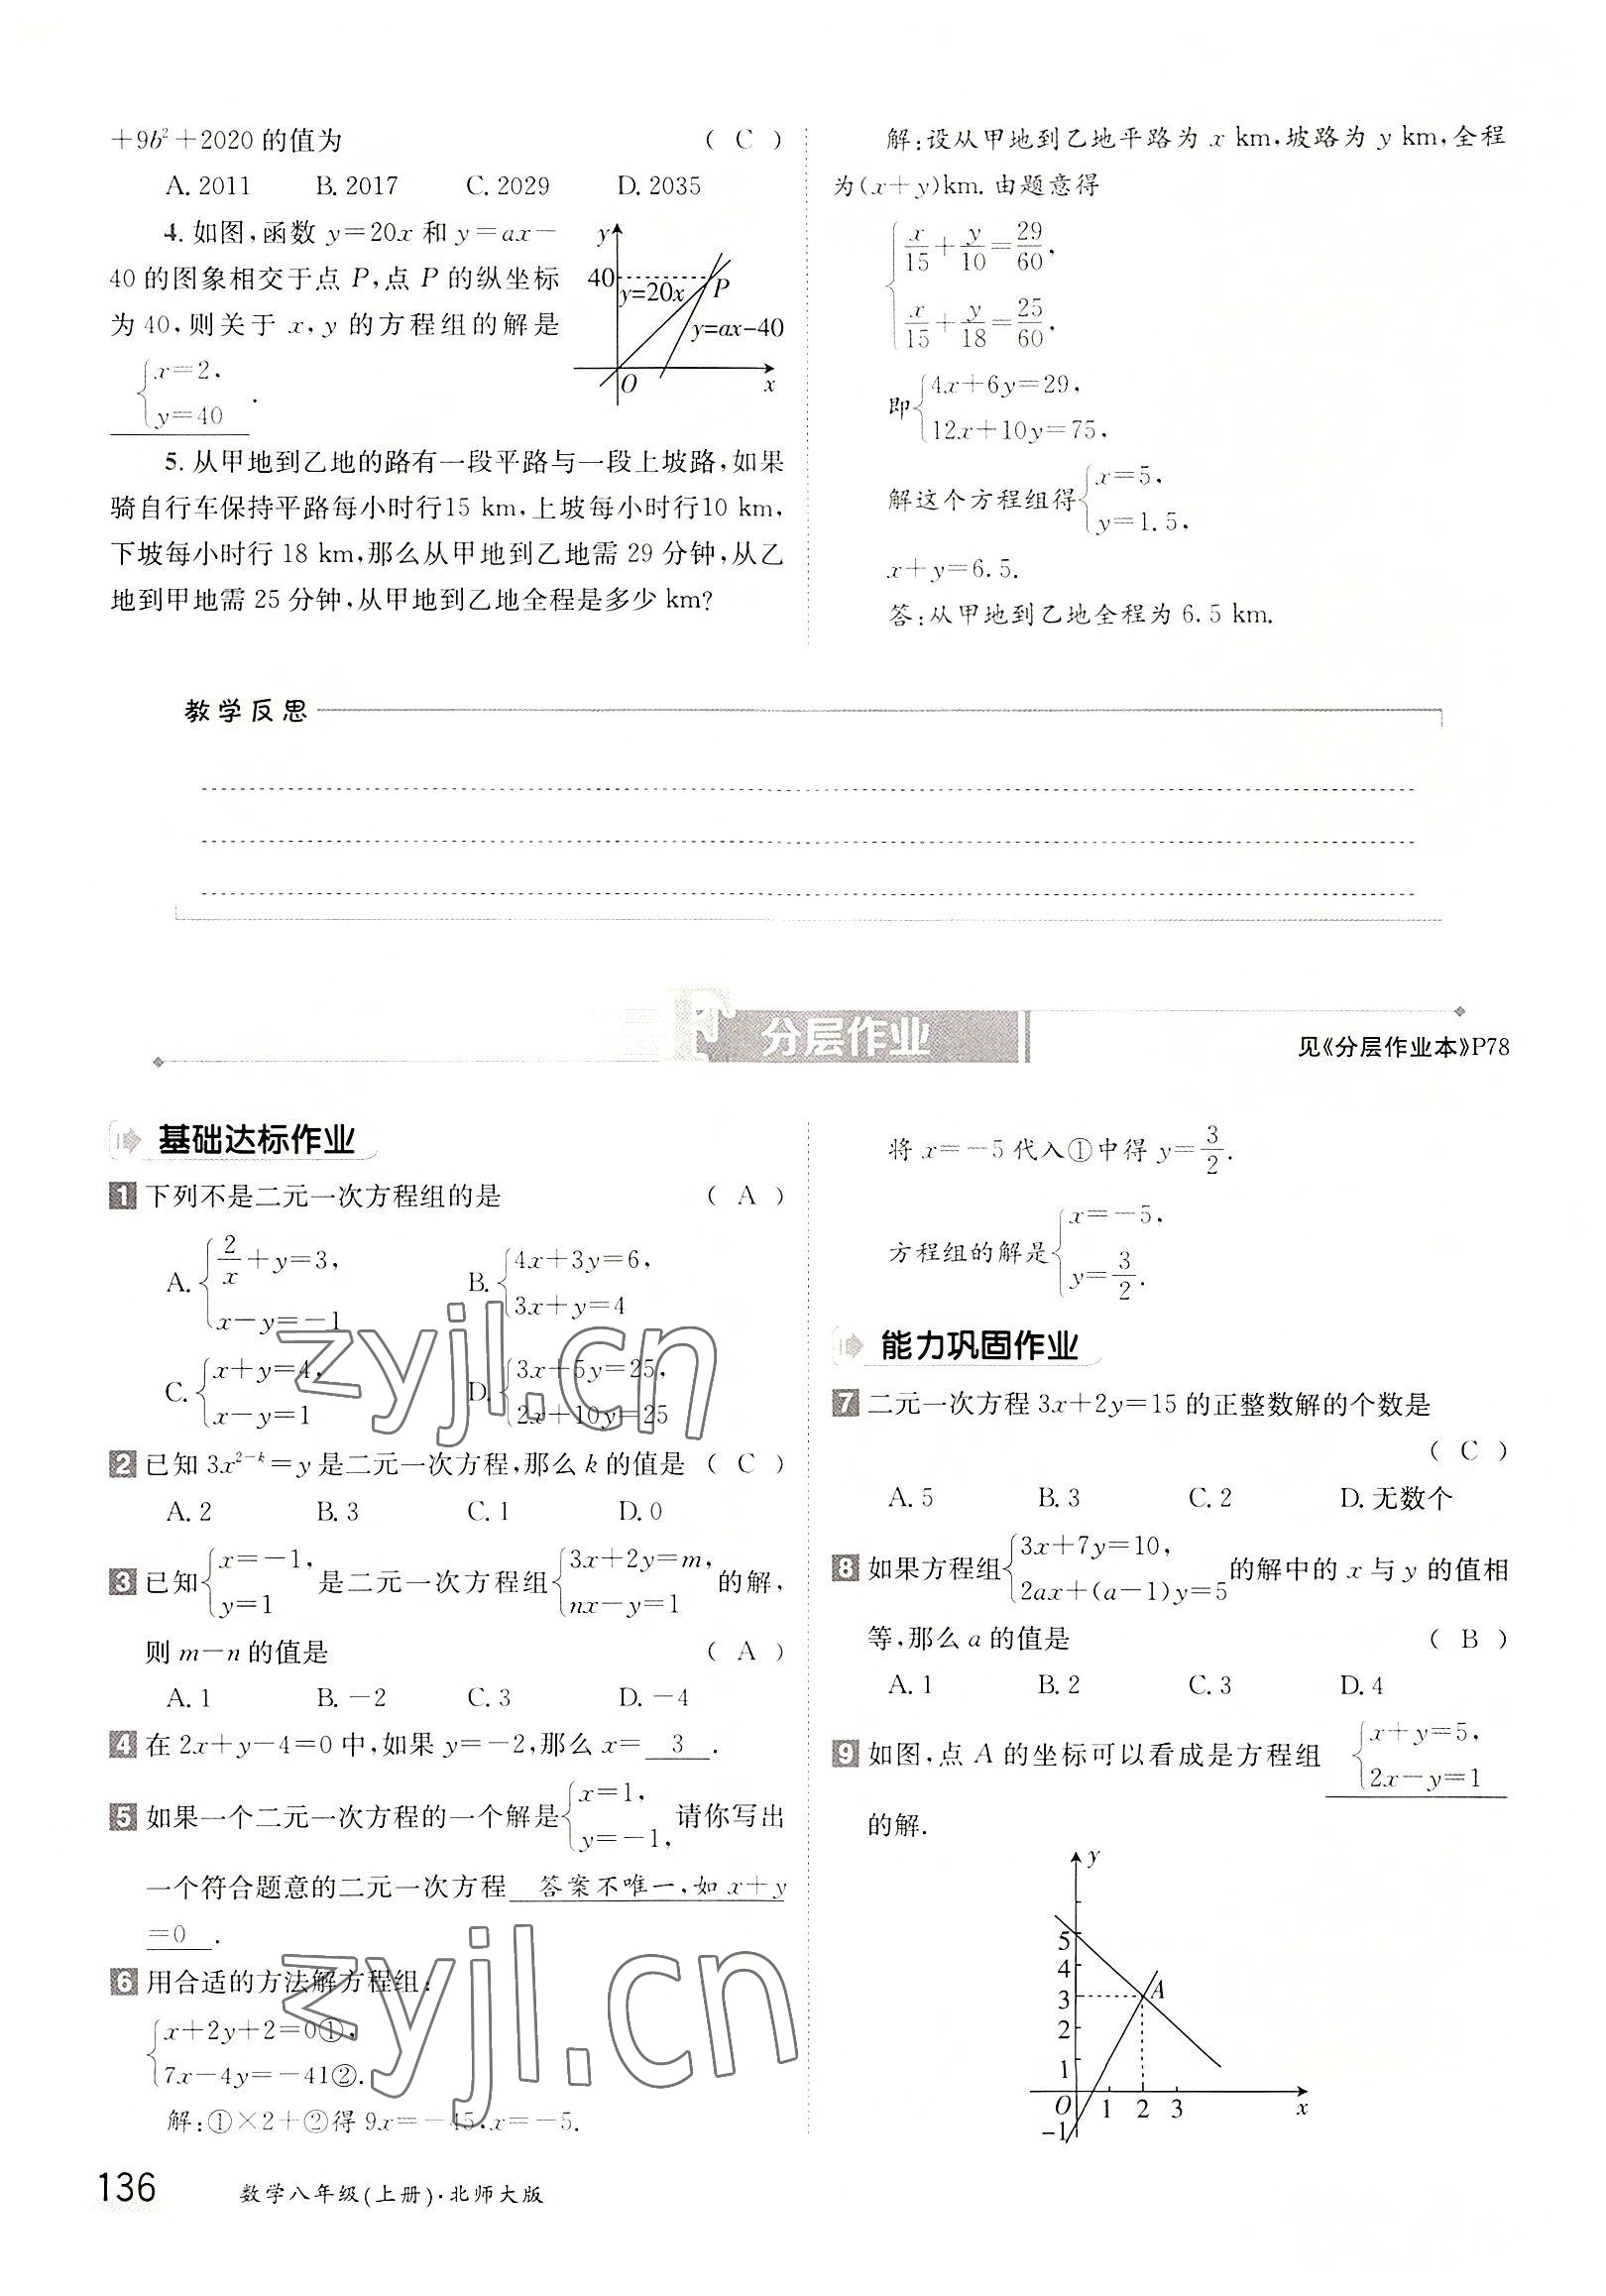 +9b²+2020 的值为 ( C )
A. 2011 B. 2017 C. 2029 D. 2035
4. 如图,函数 y=20x 和 y=ax-
40 的图象相交于点 P,点 P 的纵坐标
为 40,则关于 x,y 的方程组的解是
{x=2,
y=40 .
y
40
y=20x
P
y=ax-40
O
x
5. 从甲地到乙地的路有一段平路与一段上坡路,如果
骑自行车保持平路每小时行15 km,上坡每小时行10 km,
下坡每小时行 18 km,那么从甲地到乙地需 29 分钟,从乙
地到甲地需 25 分钟,从甲地到乙地全程是多少 km?
解:设从甲地到乙地平路为 x km,坡路为 y km,全程
为(x+y)km. 由题意得
{x/15+y/10=29/60,
x/15+y/18=25/60,
即{4x+6y=29,
12x+10y=75,
解这个方程组得{x=5,
y=1.5,
x+y=6.5.
答:从甲地到乙地全程为 6.5 km.
教学反思
分层作业
见《分层作业本》P78
基础达标作业
1 下列不是二元一次方程组的是 ( A )
A. {2/x+y=3, x-y=-1 B. {4x+3y=6, 3x+y=4
C. {x+y=4, x-y=1 D. {3x+5y=25, 2x+10y=25
2 已知 3x²⁻ᵏ=y 是二元一次方程,那么 k 的值是 ( C )
A. 2 B. 3 C. 1 D. 0
3 已知{x=-1, y=1 是二元一次方程组{3x+2y=m, nx-y=1 的解,
则 m-n 的值是 ( A )
A. 1 B. -2 C. 3 D. -4
4 在 2x+y-4=0 中,如果 y=-2,那么 x= 3 .
5 如果一个二元一次方程的一个解是{x=1, y=-1, 请你写出
一个符合题意的二元一次方程 答案不唯一,如 x+y
=0 .
6 用合适的方法解方程组:
{x+2y+2=0①,
7x-4y=-41②.
解:①×2+②得 9x=-45,x=-5.
将 x=-5 代入①中得 y=3/2.
方程组的解是{x=-5,
y=3/2.
能力巩固作业
7 二元一次方程 3x+2y=15 的正整数解的个数是
( C )
A. 5 B. 3 C. 2 D. 无数个
8 如果方程组{3x+7y=10, 2ax+(a-1)y=5 的解中的 x 与 y 的值相
等,那么 a 的值是 ( B )
A. 1 B. 2 C. 3 D. 4
9 如图,点 A 的坐标可以看成是方程组 {x+y=5, 2x-y=1
的解.
y
5
4
3
2
1
A
O
1 2 3
x
-1
zyjl.cn
zyjl.cn
136 数学八年级(上册)·北师大版